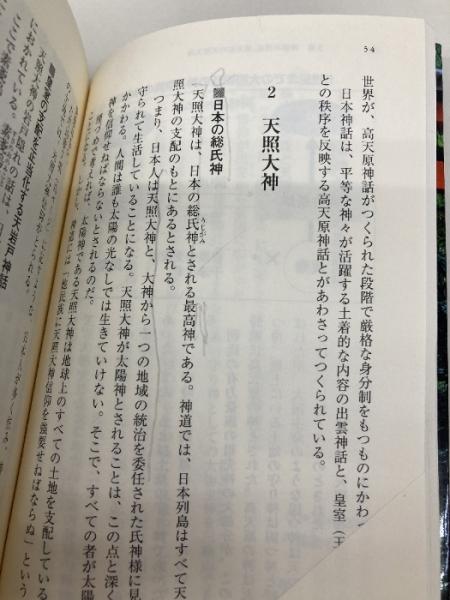 54
世界が、高天原神話がつくられた段階で厳格な身分制をもつものにかわっ
日本神話は、平等な神々が活躍する土着的な内容の出雲神話と、皇室（王
との秩序を反映する高天原神話とがあわさってつくられている。
2 天照大神
日本の総氏神
天照大神は、日本の総氏神とされる最高神である。神道では、日本列島はすべて天
うじがみ
照大神の支配のもとにあるとされる。
つまり、日本人は天照大神と、大神から一つの地域の統治を委任された氏神様に見
守られて生活していることになる。天照大神が太陽神とされることは、この点と深く
かかわる。人間は誰も太陽の光なしでは生きていけない。そこで、すべての者が太陽
神を信仰せねばならないとされるのだ。
太陽神である天照大神は地球上のすべての土地を支配している
神道には「他民族に天照大神信仰を強要せねばならぬ」という
の支配を正当化する天岩戸神話
天照大神の岩戸隠れの話は、
におかれている。